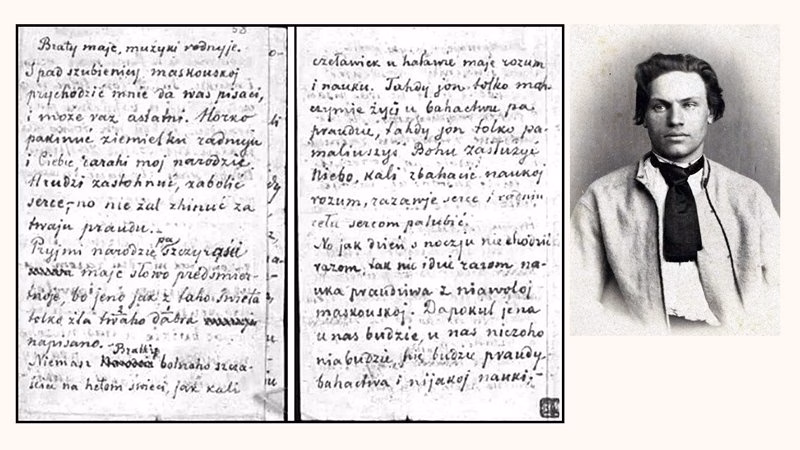 Braty maje, mużyki rodnyje.
S pad szubienicy maskouskoj
prychodzić mnie da was pisaci,
i może raz astatni. Horko
pakinuć ziemielku radnuju
i Ciebie darahi moj narodzie.
Hrudzi zastohnuć, zabolić
serce, no nie żal zhinuć za
twaju praudu.
Pryjmi narodzie pa
maje słowo predśmier-
tnoje, bo jeno jak z taho świeta
tolko dla twaho dabra
napisano.
Niemasz Bratki bolszoho szcza-
ścia na hetom świeci, jak kali
czeławiek u haławie maje rozum
i nauku. Tahdy jon tolko mah-
czymie życi u bahactwi pa
praudzie, tahdy jon tolko pa-
maliuszyś Bohu zasłużyć
Niebo, kali zbahacić naukoj
rozum, razawje serce i radniu
cełu sercom palubić.
No jak dzień z noczju nie chodzić
razom, tak nie idzie razom na-
uka praudziwa z niawoloj
maskouskoj. Dapokul jena
u nas budzie, u nas niczoho
niabudzie, nie budzie praudy,
bahactwa i nijakoj nauki;